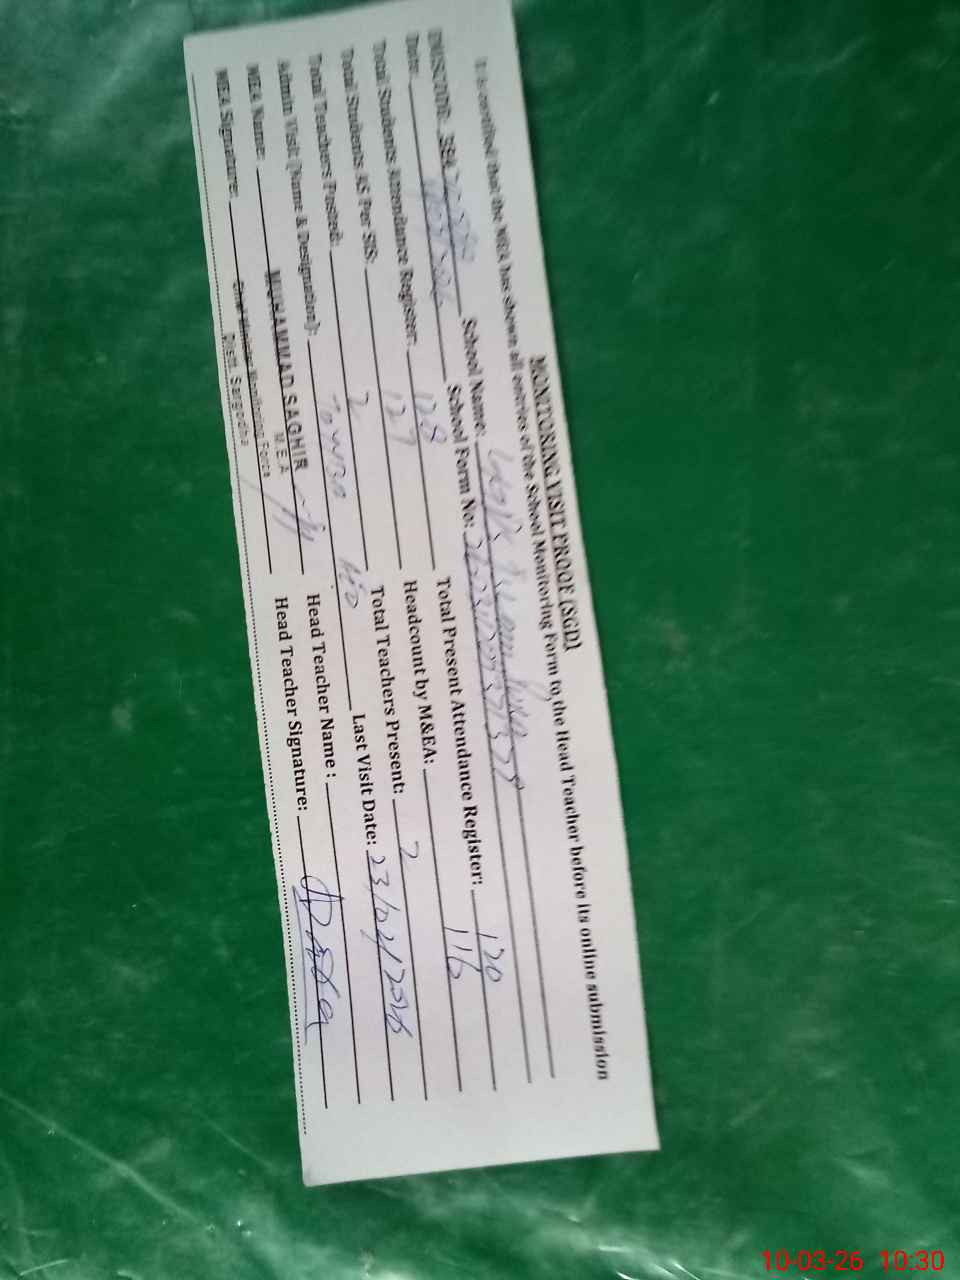 MONITORING VISIT PROOF (SGD)
It is certified that the MEA has shown all entries of the School Monitoring Form to the Head Teacher before its online submission
School Name:
Date: School Form No:
Total Students Attendance Register: 128 Total Present Attendance Register: 120
Total Students AS Per SIS: 127 Headcount by M&EA: 116
Total Teachers Posted: 2 Total Teachers Present: 2
Admin Visit (Name & Designation): Last Visit Date: 23/02/2026
MEA Name: MUHAMMAD SAGHIR Head Teacher Name :
M.E.A
MEA Signature: Chief Minister Monitoring Force Head Teacher Signature:
Distt. Sargodha
10-03-26 10:30